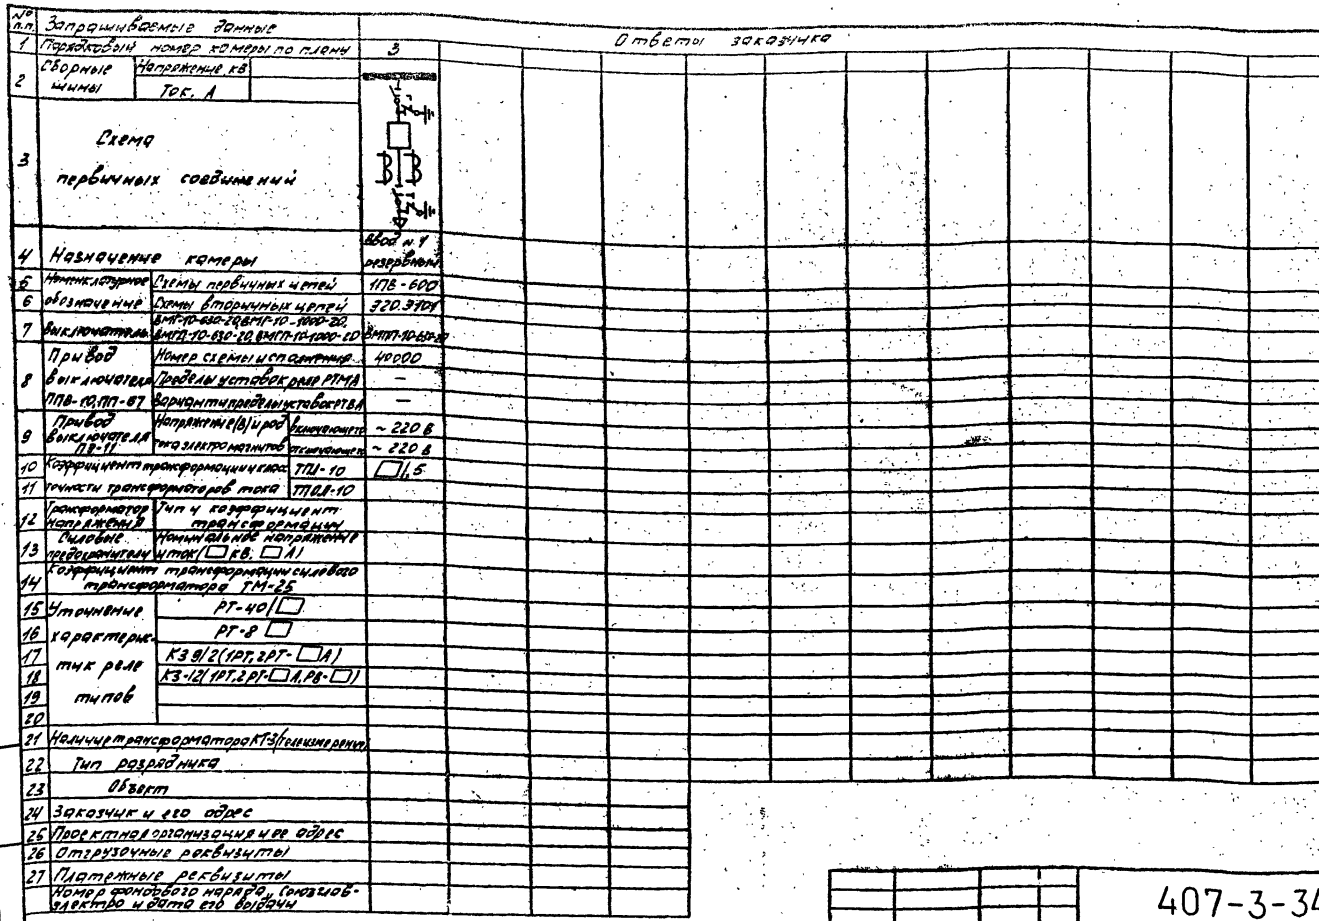 № п.п. Запрашиваемые данные
Ответы заказчика
1 Порядковый номер камеры по плану 3
2 Сборные шины Напряжение кВ
Ток, А
3 Схема
первичных соединений
4 Назначение камеры Ввод №1 резервный
5 Номенклатурное Схемы первичных цепей 17В-600
6 обозначение Схемы вторичных цепей
7 Выключатель ВМГ-10-630-20, ВМГ-10-1000-20,
ВМПП-10-630-20, ВМПП-10-1000-20
Привод Номер схемы исполнения 40000
8 выключателя Пределы уставок реле РТМА —
ППВ-10, ПП-67 Варианты пределы уставок РТВА —
9 Привод Напряжение (В) и род включающего ~ 220 В
выключателя тока электромагнитов отключающего ~ 220 В
ПЭ-11
10 Коэффициент трансформации и класс ТПЛ-10 /,5
11 точности трансформаторов тока ТПОЛ-10
12 Трансформатор напряжения Тип и коэффициент
трансформации
13 Силовые Номинальное напряжение
предохранители и ток ( кВ, А)
14 Коэффициент трансформации силового
трансформатора ТМ-25
15 Уточнение РТ-40/
16 характерис- РТ-8
17 тик реле КЗ 9/2 (1РТ, 2РТ- А)
18 КЗ-12 (1РТ, 2РТ- А, РВ- )
19 типов
20
21 Наличие трансформатора КТЗ (телеизмерения)
22 Тип разрядника
23 Объект
24 Заказчик и его адрес
25 Проектная организация и ее адрес
26 Отгрузочные реквизиты
27 Платежные реквизиты
Номер фондового наряда "Союзглав-
электро и дата его выдачи
407-3-34